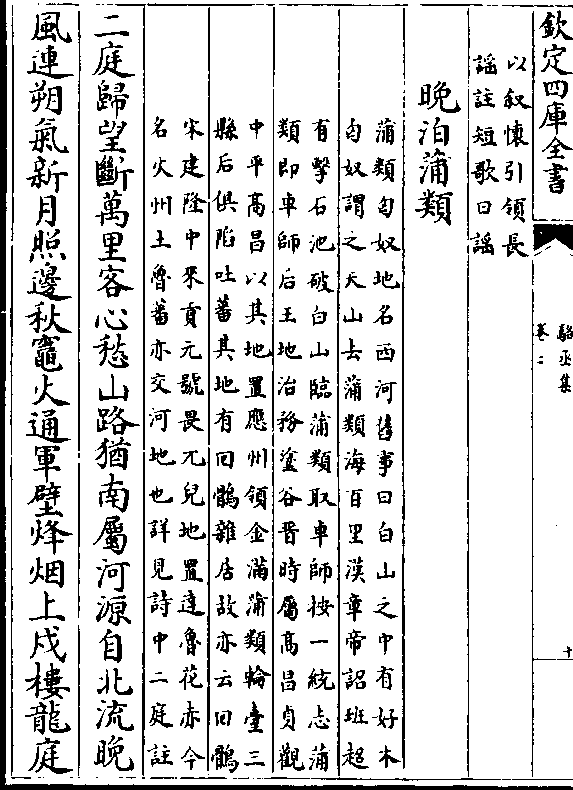 欽定四庫全書
駱丞集
卷二
十
以叙懷引領長
謡註短歌曰謡
晚泊蒲類
蒲類匈奴地名西河舊事曰白山之中有好木
匈奴謂之天山去蒲類海百里漢章帝詔班超
有擊石池破白山臨蒲類取車師按一統志蒲
類即車師后王地治務塗谷晉時屬高昌貞觀
中平高昌以其地置應州領金滿蒲類輪臺三
縣后俱陷吐蕃其地有回鶻雜居故亦云回鶻
宋建隆中來貢元號畏兀兒地置達魯花赤今
名火州土魯蕃亦交河地也詳見詩中二庭註
二庭歸望斷萬里客心愁山路猶南屬河源自北流晚
風連朔氣新月照邊秋竈火通軍壁烽烟上戍樓龍庭